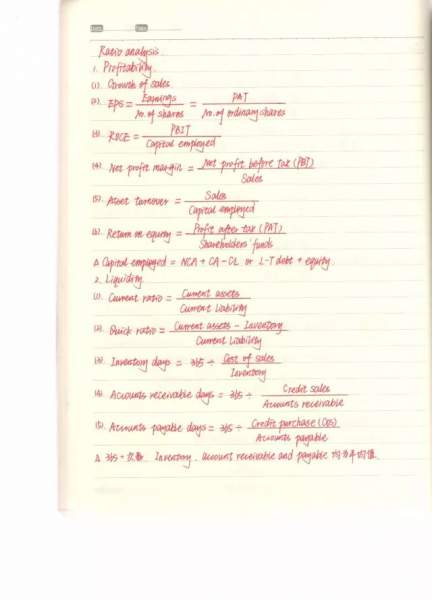 Ratio analysis
1. Profitability
(1). Growth of sales
(2). EPS = Earnings / No. of shares = PAT / No. of ordinary shares
(3). ROCE = PBIT / Capital employed
(4). Net profit margin = Net profit before tax (PBT) / Sales
(5). Asset turnover = Sales / Capital employed
(6). Return on equity = Profit after tax (PAT) / Shareholders' funds
Δ Capital employed = NCA + CA - CL or L-T debt + equity.
2. Liquidity
(1). Current ratio = Current assets / Current Liability
(2). Quick ratio = Current assets - Inventory / Current Liability
(3). Inventory days = 365 ÷ Cost of sales / Inventory
(4). Accounts receivable days = 365 ÷ Credit sales / Accounts receivable
(5). Accounts payable days = 365 ÷ Credit purchase (COS) / Accounts payable
Δ 365 ÷ 次数. Inventory. account receivable and payable 均为平均值.